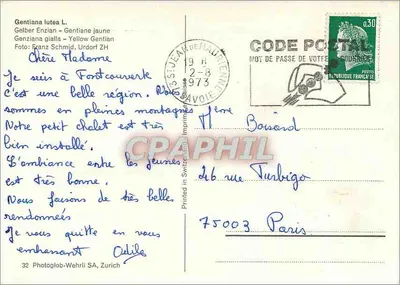 Gentiana lutea L.
Gelber Enzian - Gentiane jaune
Genziana gialla - Yellow Gentian
Foto: Franz Schmid, Urdorf ZH
Chère Madame
Je suis à Fontcouverte
c'est une belle région. Nous
sommes en pleines montagnes
Notre petit chalet est très
bien installé.
L'ambiance entre les jeunes
est très bonne.
Nous faisons de très belles
rendonnées
Je vous quitte en vous
embrassant Odile
32 Photoglob-Wehrli SA, Zurich
Printed in Switzerland
ST JEAN DE MAURIENNE
19 H
2-8
1973
SAVOIE
CODE POSTAL
MOT DE PASSE DE VOTRE
0,30
REPUBLIQUE FRANÇAISE
Mme Boisard
46 rue Turbigo
75003 Paris
CPAPHIL